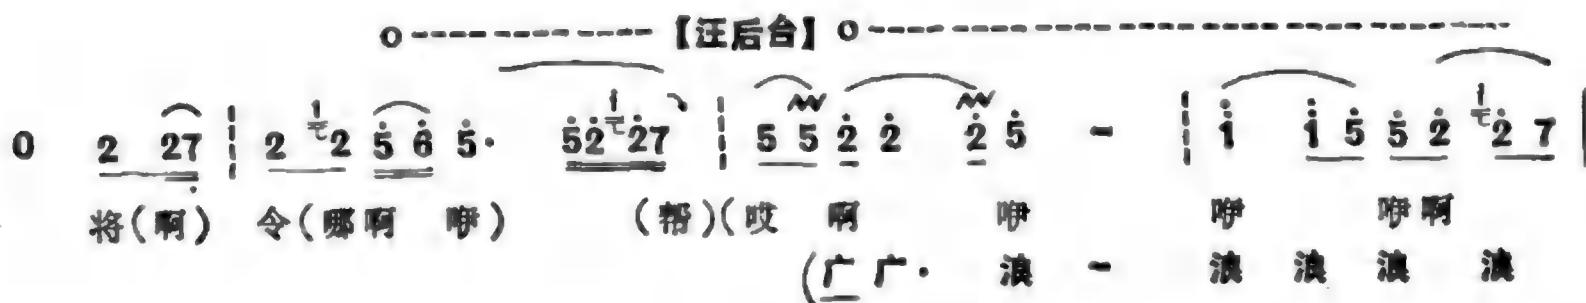 o---------- 【汪后台】 o--------------------
0 2 27 ¦ 2 1 2 5̇ 6̇ 5̇· 5̇2̇ 1 2̇7 ¦ 5 5 2̇ 2̇ 2̇ 5̇ - ¦ 1̇ 1̇ 5̇ 5̇ 2̇ 1̇ 2̇ 7
将(啊) 令(哪啊 咿) (帮)(哎 啊 咿 咿 咿啊
(广 广· 浪 - 浪 浪 浪 浪